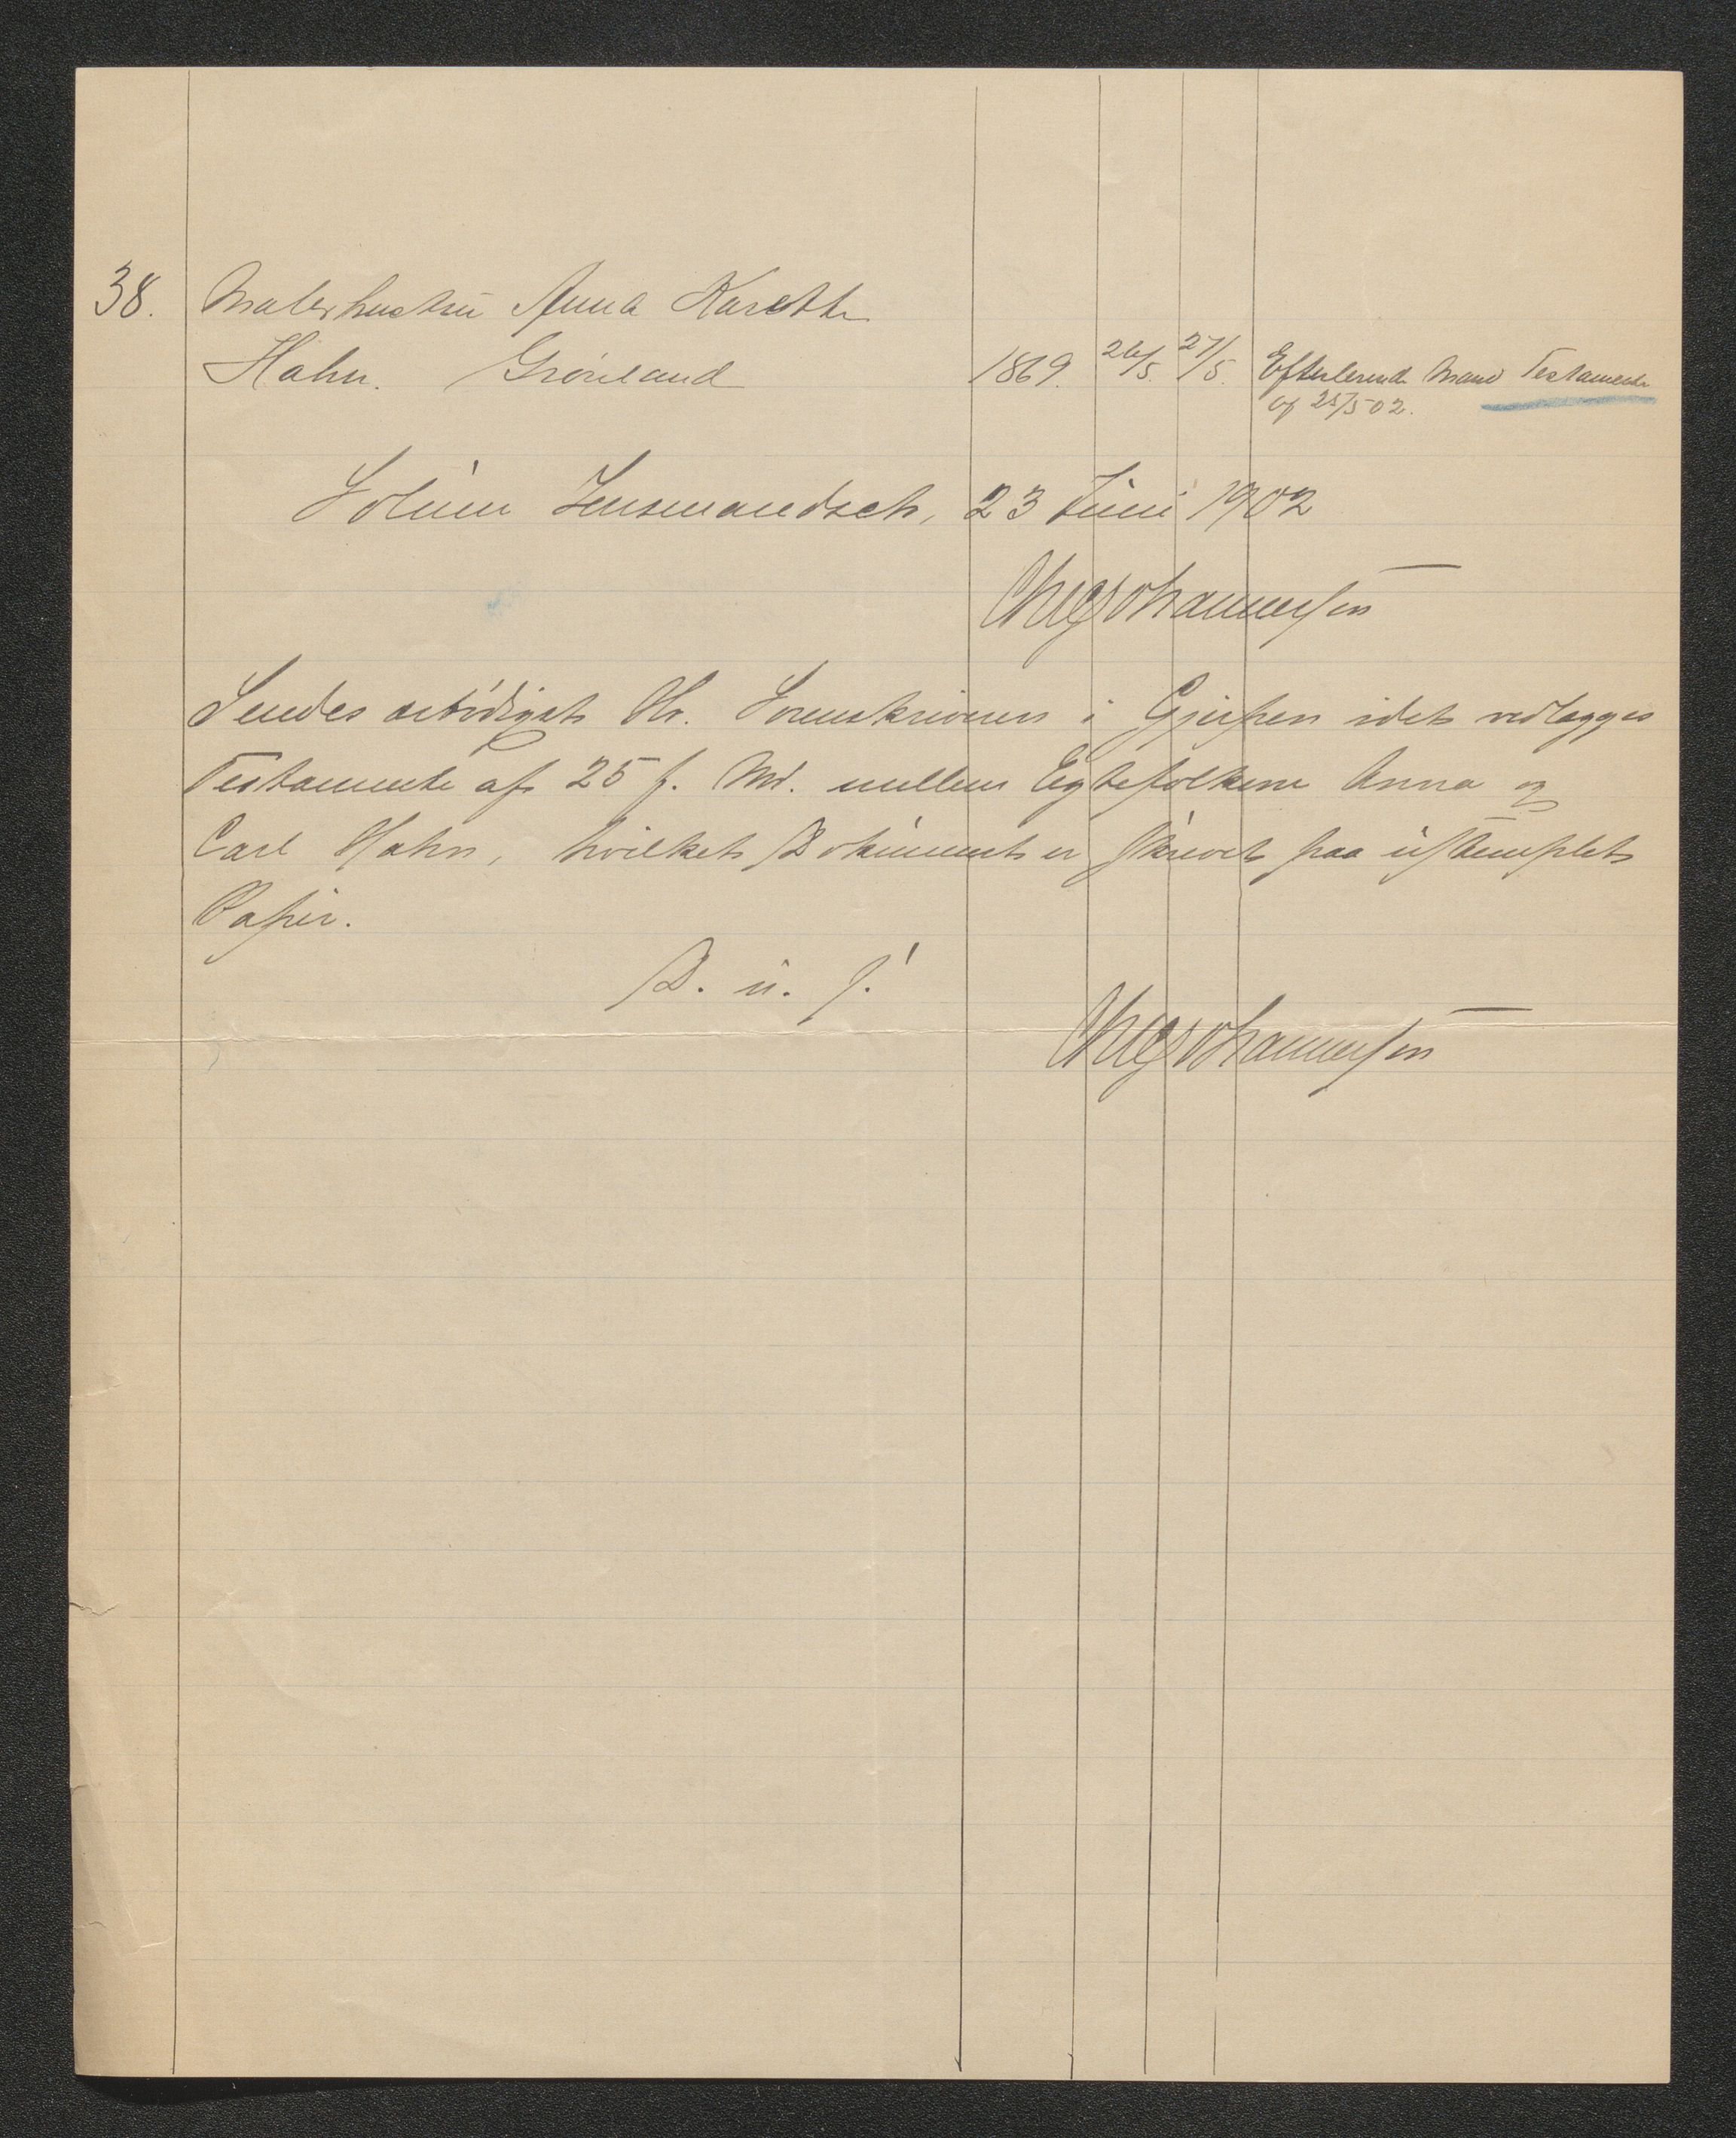 38. Malerhustru Anna Karethe
Hahn. Grønland 1869. 26/5. 27/5. Efterlevende Mand Testamente
af 25/5 02.
Solum Lensmandsch, 23 Juni 1902
Chr Johannessen
Sendes ærbødigst Hr. Sorenskriveren i Gjerpen idet vedlægges
Testamente af 25 f. Md. mellem Egtefolkene Anna og
Carl Hahn, hvilket Dokument er skrevet paa ustemplet
Papir.
D. u. s.
Chr Johannessen